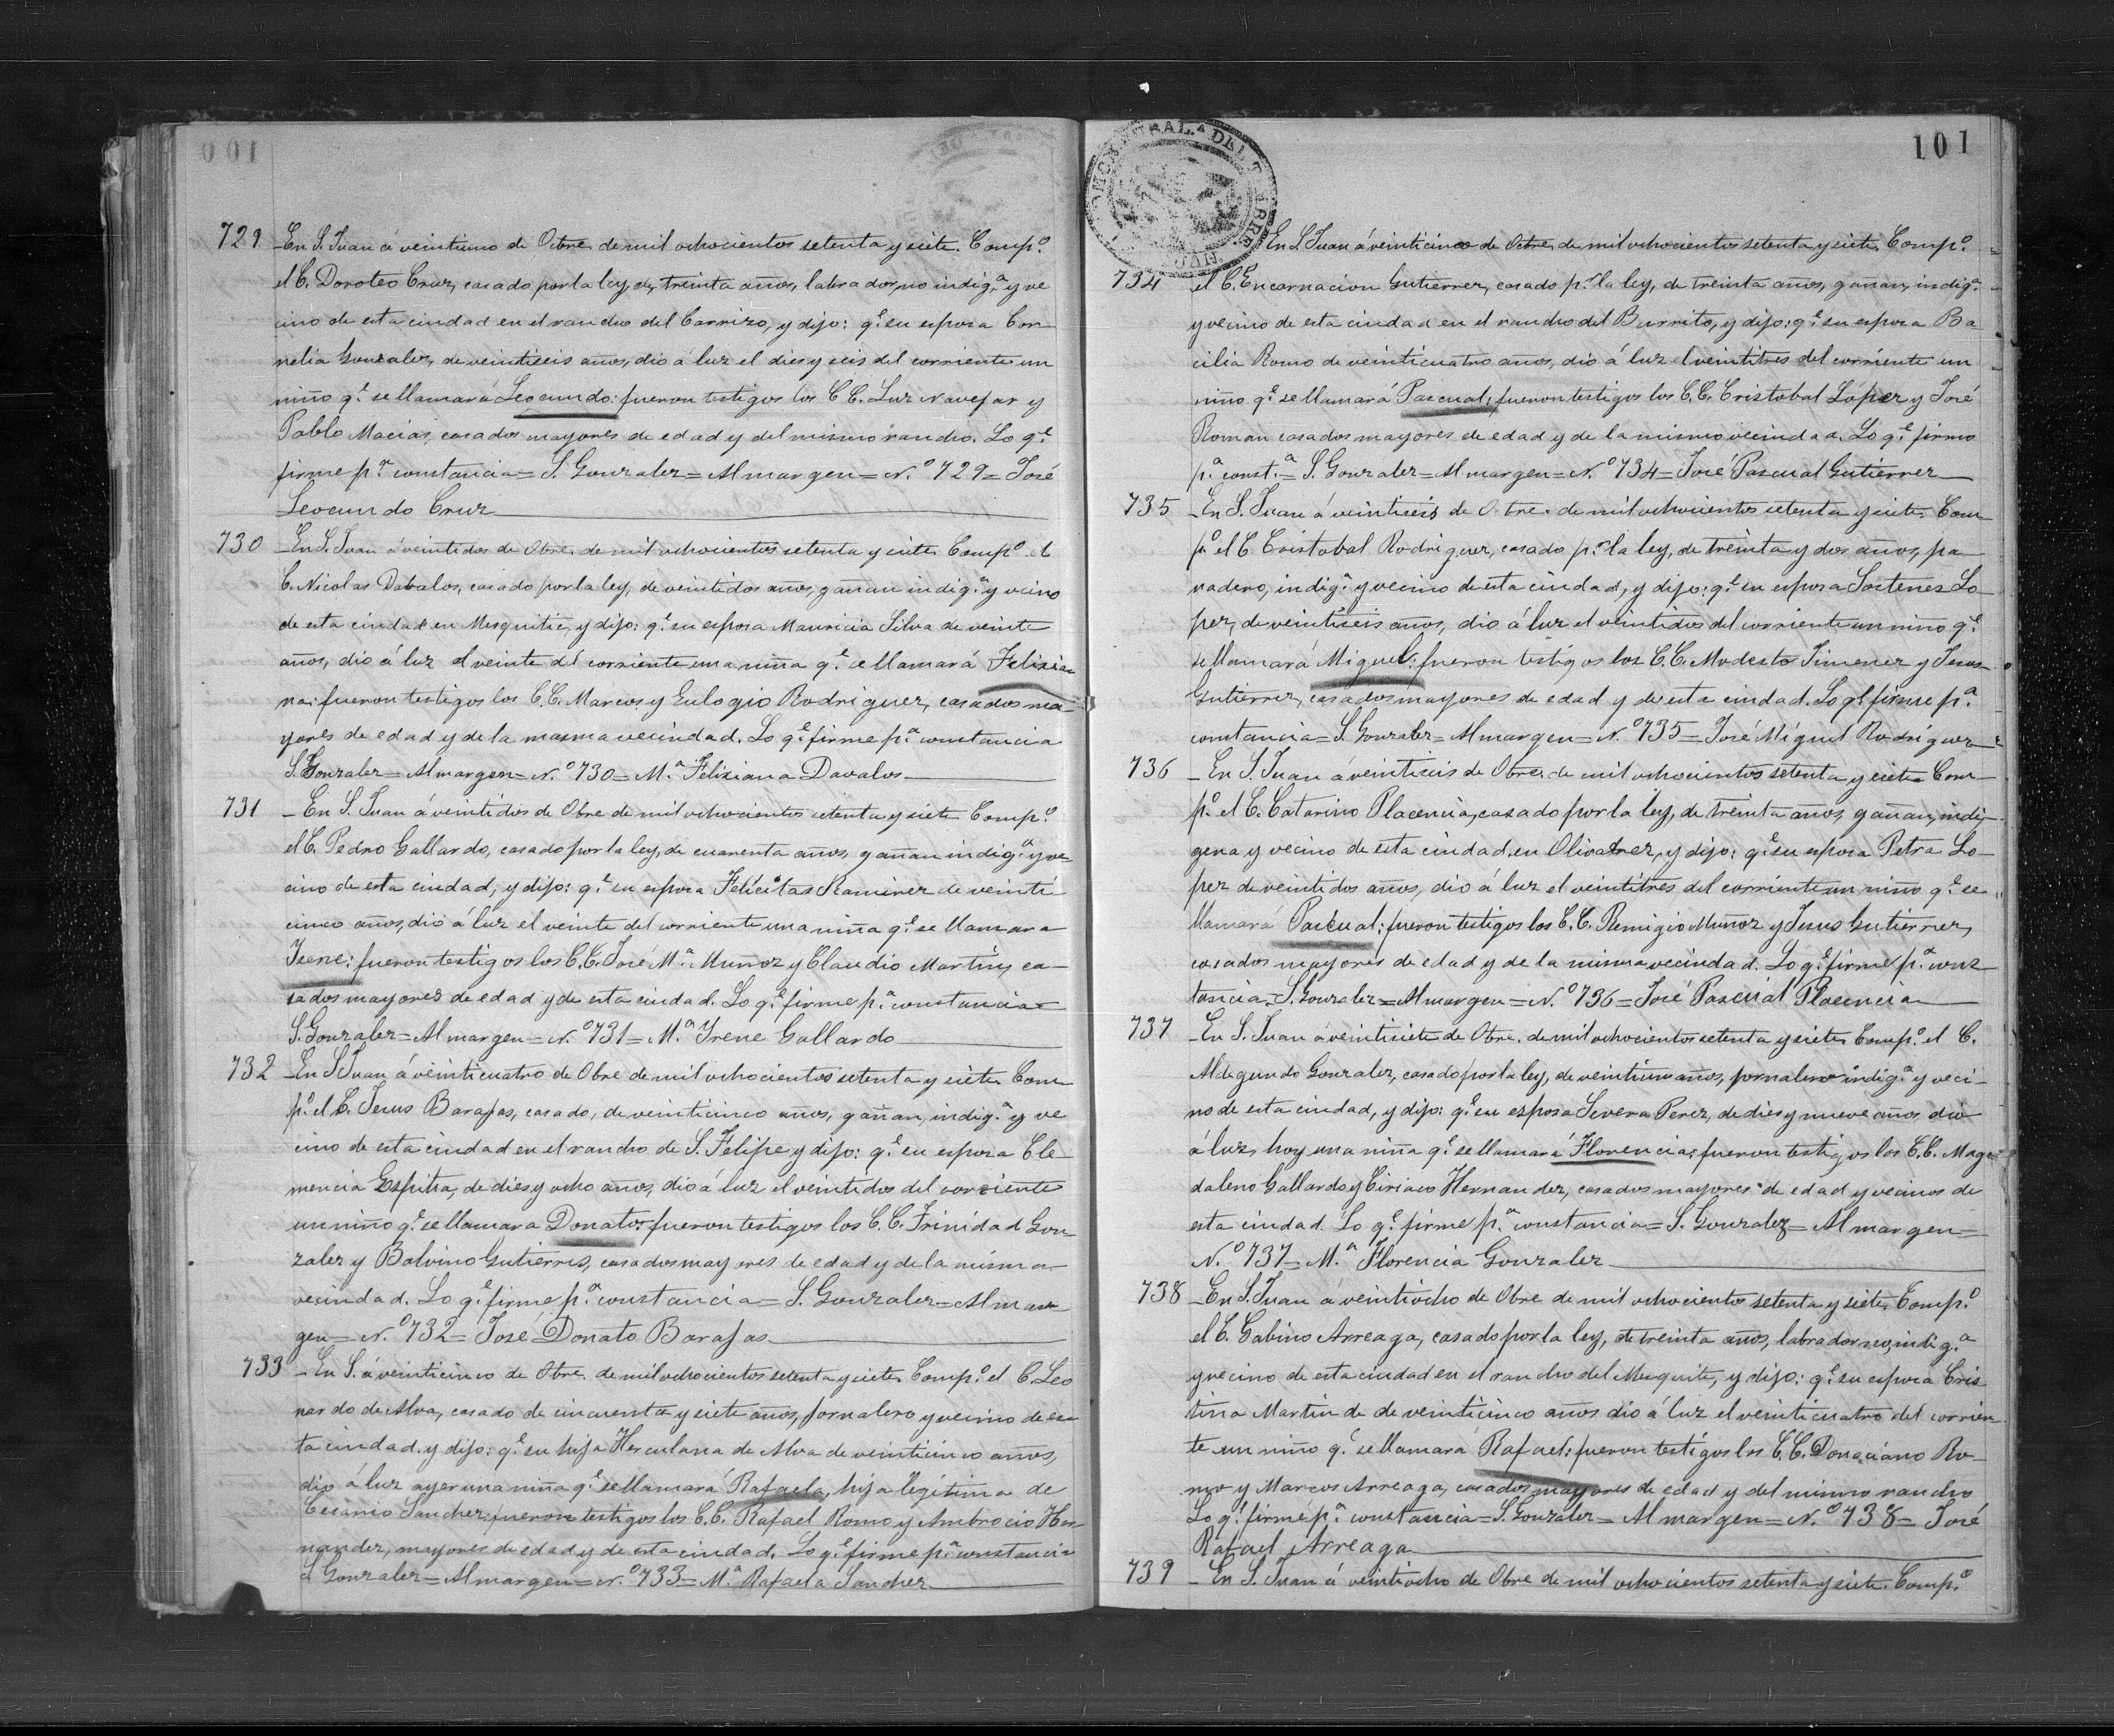 729 En S. Juan á veintiuno de Octre. de mil ochocientos setenta y siete. Comp.o
el C. Doroteo Cruz, casado por la ley, de treinta años, labrador, no indig.a y ve
cino de esta ciudad en el rancho del Carrizo, y dijo: q.e su esposa Cor
nelia Gonzalez, de veintiseis años, dio á luz el dies y seis del corriente un
niño q.e se llamará Leocundo: fueron testigos los C.C. Luz Navejar y
Pablo Macias, casados mayores de edad y del mismo rancho. Lo q.e
firme p.a constancia = S. Gonzalez = Al margen = N.o 729 = José
Leocundo Cruz
730 En S. Juan á veintidos de Obre. de mil ochocientos setenta y siete. Comp.o el
C. Nicolas Dabalos, casado por la ley, de veintidos años, gañan indig.a y vecino
de esta ciudad en Mesquitic, y dijo: q.e su esposa Mauricia Silva de veinte
años, dio á luz el veinte del corriente una niña q.e se llamará Felizia
na: fueron testigos los C.C. Marcos y Eulogio Rodriguez, casados ma
yores de edad y de la masma vecindad. Lo q.e firme p.a constancia
S. Gonzalez = Al margen = N.o 730 = M.a Feliziana Davalos
731 En S. Juan á veintidos de Obre de mil ochocientos setenta y siete Comp.o
el C. Pedro Gallardo, casado por la ley, de cuarenta años, gañan indig.a y ve
cino de esta ciudad, y dijo: q.e su esposa Felícitas Ramirez de veinti
cinco años, dió á luz el veinte del corriente una niña q.e se llamara
Irene: fueron testigos los C.C. José M.a Muñoz y Claudio Martin, ca
sados mayores de edad y de esta ciudad. Lo q.e firme p.a constancia =
S. Gonzalez = Al margen = N.o 731 = M.a Irene Gallardo
732 En S Juan á veinticuatro de Obre de mil ochocientos setenta y siete. Com
p.o el C. Jesus Barajas, casado, de veinticinco años, gañan, indig.a y ve
cino de esta ciudad en el rancho de S. Felipe y dijo: q.e su esposa Cle
mencia Espitia, de dies y ocho años, dió á luz el veintidos del corriente
un niño q.e se llamara Donato: fueron testigos los C.C. Trinidad Gon
zalez y Balvino Gutierres, casados mayores de edad y de la misma
vecindad. Lo q.e firme p.a constancia = S. Gonzalez = Al mar
gen = N.o 732 = José Donato Barajas
733 En S. á veinticinco de Obre. de mil ochocientos setenta y siete. Comp.o el C. Leo
nardo de Alva, casado de cincuenta y siete años, jornalero y vecino de es
ta ciudad y dijo: q.e su hija Herculana de Alva de veinticinco años,
dio á luz ayer una niña q.e se llamará Rafaela, hija legítima de
Cesario Sanchez: fueron testigos los C.C. Rafael Romo y Ambrocio Her
nandez, mayores de edad y de esta ciudad. Lo q.e firme p.a constancia
S. Gonzalez = Al margen = N.o 733 = M.a Rafaela Sanchez
101
En S. Juan á veinticinco de Octre. de mil ochocientos setenta y siete. Comp.o
734 el C. Encarnacion Gutierrez, casado p.r la ley, de treinta años, gañan, indig.a
y vecino de esta ciudad en el rancho del Burrito, y dijo: q.e su esposa Ba
cilia Romo de veinticuatro años, dio á luz el veintitres del corriente un
niño q.e se llamará Pascual: fueron testigos los C.C. Cristobal López y José
Roman casados mayores de edad y de la mismo vecindad. Lo q.e firmo
p.a const.a = S. Gonzalez = Al margen = N.o 734 = José Pascual Gutiérrez
735 En S. Juan á veintiseis de Otre. de mil ochocientos setenta y siete. Com
p.o el C. Cristobal Rodriguez, casado p.r la ley, de treinta y dos años, pa
nadero, indig.a y vecino de esta ciudad, y dijo: q.e su esposa Sostenes Lo
pez, de veintiseis años, dió á luz el veintidos del corriente un niño q.e
se llamará Miguel: fueron testigos los C.C. Modesto Jimenez y Jesus
Gutierrez, casados mayores de edad y de esta ciudad. Lo q.e firme p.a
constancia = S. Gonzalez = Al margen = N.o 735 = José Miguel Rodriguez
736 En S. Juan á veintiseis de Obre. de mil ochocientos setenta y siete Com
p.o el C. Catarino Placencia, casado por la ley, de treinta años, gañan, indi
gena y vecino de esta ciudad, en Olivarez, y dijo: q.e su esposa Petra Lo
pez de veintidos años, dió á luz el veintitres del corriente un niño q.e se
llamará Pascual: fueron testigos los C.C. Remigio Muñoz y Jesus Gutierrez,
casados mayores de edad y de la misma vecindad. Lo q.e firme p.a cons
tancia = S. Gonzalez = Al margen = N.o 736 = José Pascual Placencia
737 En S. Juan á veintisiete de Obre. de mil ochocientos setenta y siete. Comp.o el C.
Aldegundo Gonzalez, casado por la ley, de veintiun años, jornalero indig.a y veci
no de esta ciudad, y dijo: q.e su esposa Severa Perez, de dies y nueve años, dio
á luz, hoy una niña q.e se llamará Florencia: fueron testigos los C.C. Mag
daleno Gallardo y Ciriaco Hernandez, casados mayores de edad y vecinos de
esta ciudad. Lo q.e firme p.a constancia = S. Gonzalez = Al margen =
N.o 737 = M.a Florencia Gonzalez
738 En S. Juan á veintiocho de Obre de mil ochocientos setenta y siete, Comp.o
el C. Gabino Arreaga, casado por la ley, de treinta años, labrador no, indig.a
y vecino de esta ciudad en el rancho del Mesquite, y dijo: q.e su esposa Cris
tina Martin de de veinticinco años dio á luz el veinticuatro del corrien
te un niño q.e se llamará Rafael: fueron testigos los C.C. Donaciano Ro
mo y Marcos Arreaga, casados mayores de edad y del mismo rancho
Lo q.e firmé p.a constancia = S. Gonzalez = Al margen = N.o 738 = José
Rafael Arreaga
739 En S. Juan á veintiocho de Obre de mil ochocientos setenta y siete. Comp.o